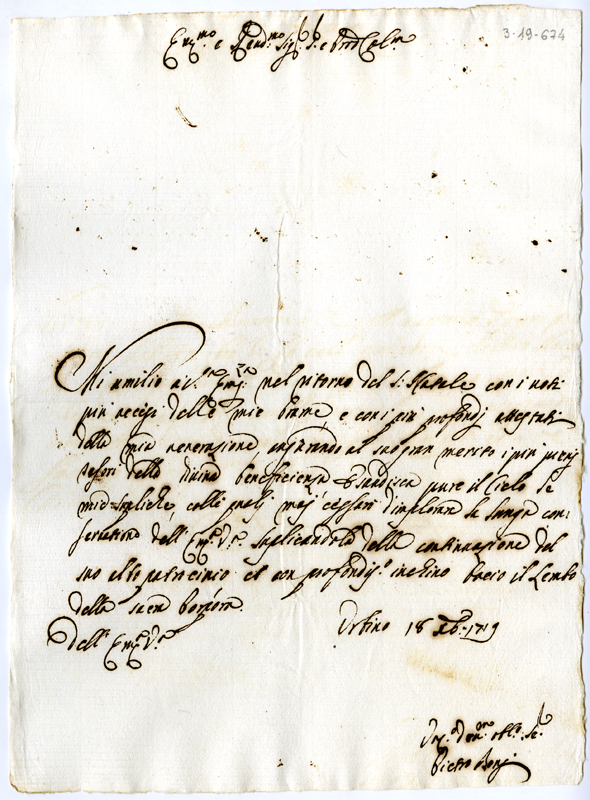 3-19-674
Em.mo e Rend.mo Sig.r S.e e Pron Col.mo
Mi umilio a V.ra Em.za nel ritorno del S: Natale con i voti
più accesi delle mie brame, e con i più profondi attestati
della mia venerazione, augurando al suo gran merito i più pieni
tesori della divina beneficienza. Esaudisca pure il Cielo le
mie supliche, colle quali mai cessarò d'implorare la lunga con:
servatione dell' Em.za V.ra suplicandola della continuazione del
suo alto patrocinio et con profondis.o inchino bacio il Lembo
della sacra porpora.
Dell' Em.za V.ra
Urbino 18 Xb.re 1719
Um.o Dev.mo obl.o Se.
Pietro